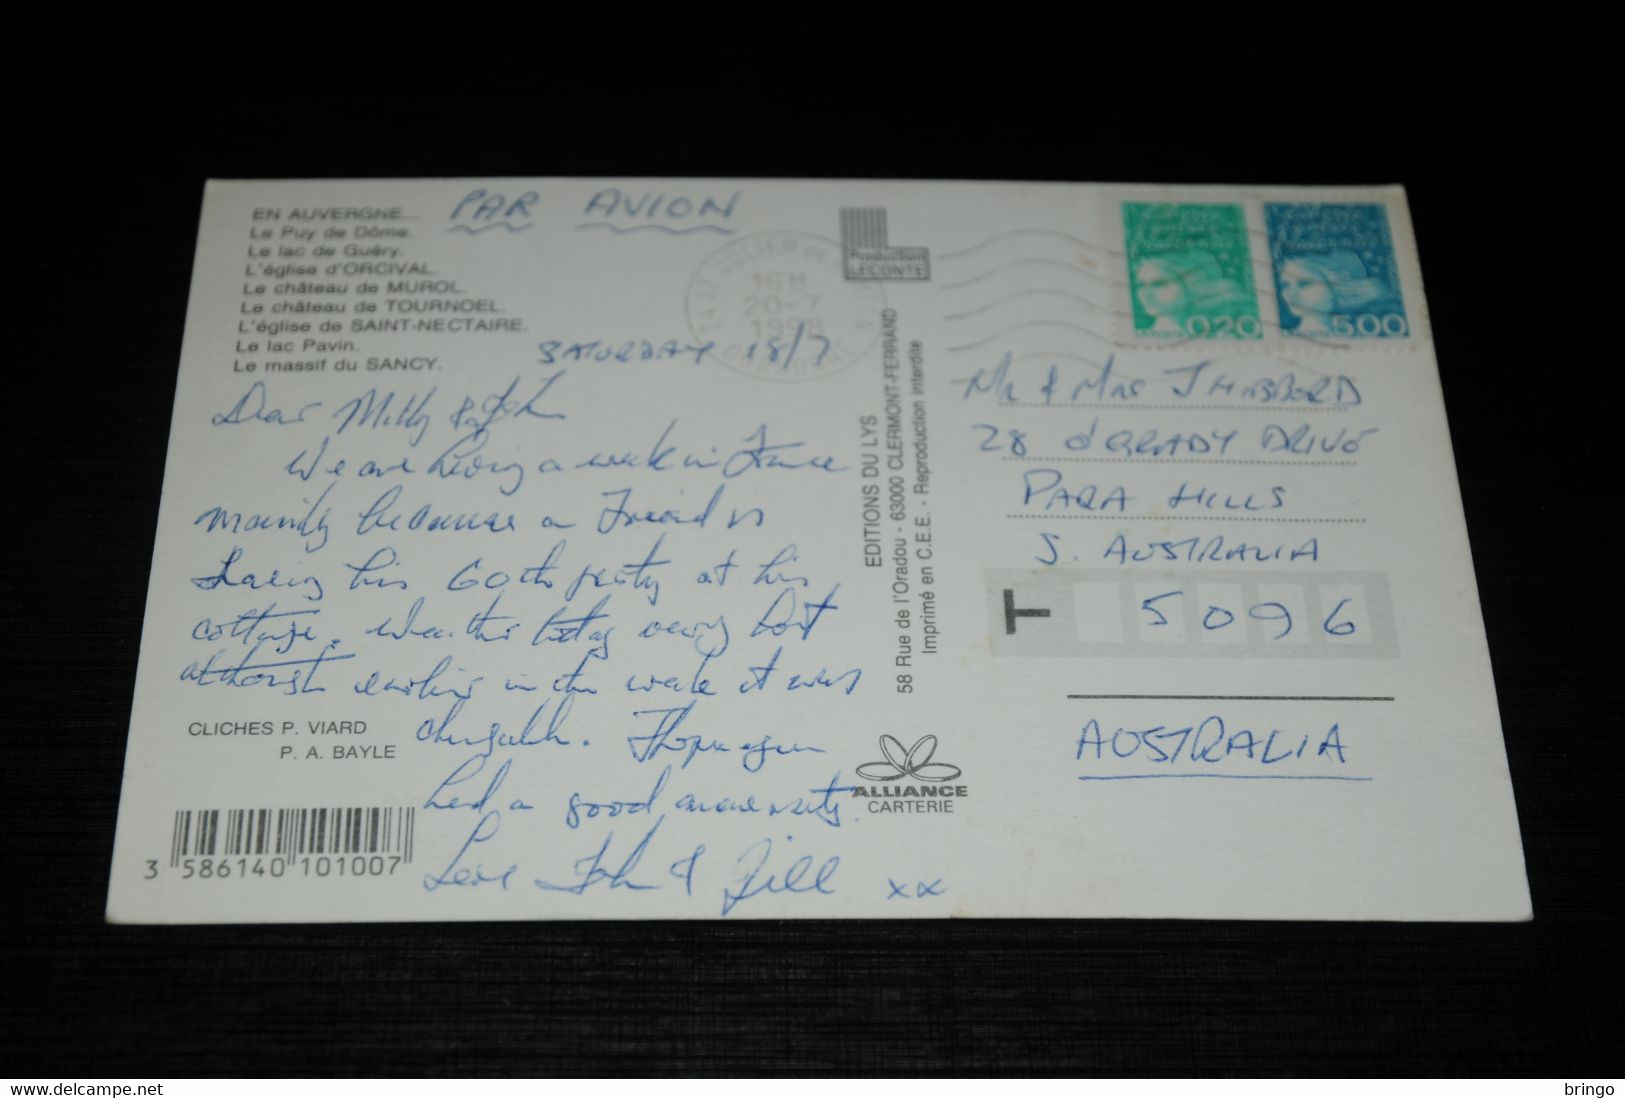 PAR AVION
EN AUVERGNE...
Le Puy de Dôme.
Le lac de Guéry.
L'église d'ORCIVAL.
Le château de MUROL.
Le château de TOURNOEL.
L'église de SAINT-NECTAIRE.
Le lac Pavin.
Le massif du SANCY.
SATURDAY 18/7
Dear Milly & John
We are having a week in France
mainly because a friend is
having his 60th party at his
cottage. Weather today very hot
although earlier in the week it was
changeable. Hope you
had a good anniversary.
Love John & Jill xx
CLICHES P. VIARD
P. A. BAYLE
3 586140 101007
16 H
20-7
1998
DORDOGNE
Production
LECONTE
EDITIONS DU LYS
58 Rue de l'Oradou - 63000 CLERMONT-FERRAND
Imprimé en C.E.E. - Reproduction interdite
ALLIANCE
CARTERIE
LA POSTE 0,20
LA POSTE 5,00
Mr & Mrs J HIBBERD
28 O'GRADY DRIVE
PARA HILLS
S. AUSTRALIA
T 5096
AUSTRALIA
bringo